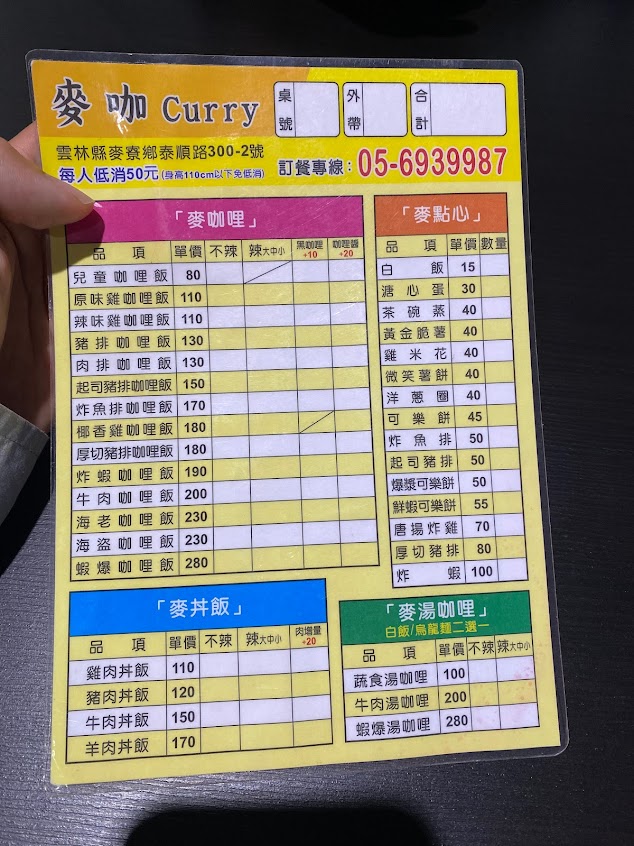 麥咖 Curry
桌號
外帶
合計
雲林縣麥寮鄉泰順路300-2號
每人低消50元(身高110cm以下免低消)
訂餐專線：05-6939987
「麥咖哩」
品項 單價 不辣 辣大中小 黑咖哩+10 咖哩醬+20
兒童咖哩飯 80
原味雞咖哩飯 110
辣味雞咖哩飯 110
豬排咖哩飯 130
肉排咖哩飯 130
起司豬排咖哩飯 150
炸魚排咖哩飯 170
椰香雞咖哩飯 180
厚切豬排咖哩飯 180
炸蝦咖哩飯 190
牛肉咖哩飯 200
海老咖哩飯 230
海盜咖哩飯 230
蝦爆咖哩飯 280
「麥點心」
品項 單價 數量
白飯 15
溏心蛋 30
茶碗蒸 40
黃金脆薯 40
雞米花 40
微笑薯餅 40
洋蔥圈 40
可樂餅 45
炸魚排 50
起司豬排 50
爆漿可樂餅 50
鮮蝦可樂餅 55
唐揚炸雞 70
厚切豬排 80
炸蝦 100
「麥丼飯」
品項 單價 不辣 辣大中小 肉增量+20
雞肉丼飯 110
豬肉丼飯 120
牛肉丼飯 150
羊肉丼飯 170
「麥湯咖哩」
白飯/烏龍麵二選一
品項 單價 不辣 辣大中小
蔬食湯咖哩 100
牛肉湯咖哩 200
蝦爆湯咖哩 280